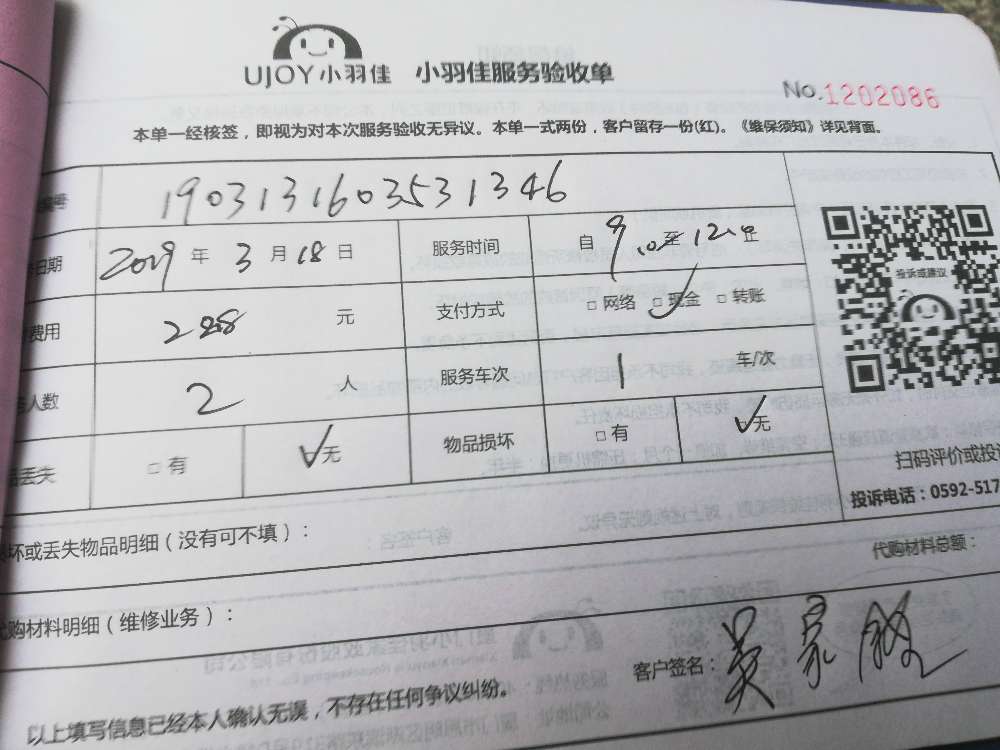 UJOY小羽佳 小羽佳服务验收单
No.1202086
本单一经核签，即视为对本次服务验收无异议。本单一式两份，客户留存一份(红)。《维保须知》详见背面。
编号 1903131603531346
日期 2019 年 3 月 18 日 服务时间 自 9.0至 12.0止
费用 288 元 支付方式 □ 网络 □ 现金 □ 转账
人数 2 人 服务车次 1 车/次
丢失 □ 有 无 物品损坏 □ 有 无
投诉或建议
扫码评价或投
投诉电话：0592-517
坏或丢失物品明细（没有可不填）：
代购材料总额：
代购材料明细（维修业务）：
客户签名：吴家
以上填写信息已经本人确认无误，不存在任何争议纠纷。